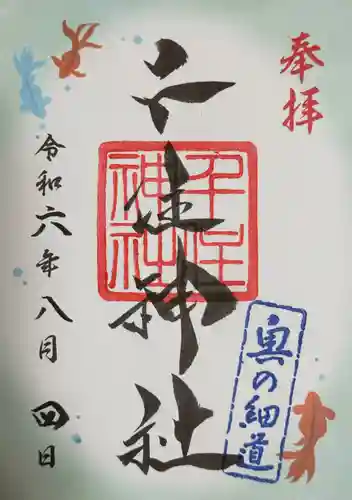 奉拝
奥の細道
千住神社
千住
神社
令和六年八月四日